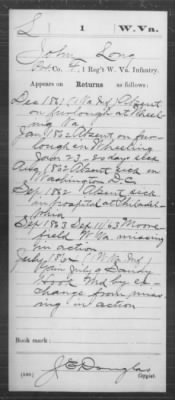 L | 1 | W. Vn.
John Long
Co. F, 1 Reg't W. Va. Infantry.
Appears on Returns as follows:
Dec 1861 Absent
on furlough at Wheeling
Jan 1862 Absent on fur-
lough in Wheeling
Jan 23 - 20 days
Aug 1862 Absent sick in
Washington D.C.
Sep 1862 Absent sick
in hospital at Philadel-
phia
Sep 1863 Sep 11/63 Moore-
field W Va missing
in action
July 1864
July Sandy
Hook Md by ex-
change from miss-
ing in action
Book mark:
J E Douglas
Copyist.